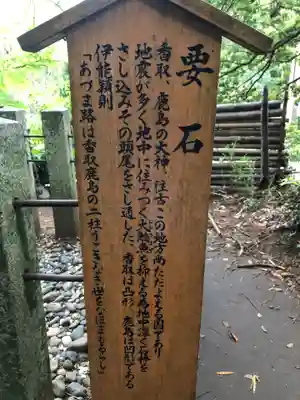 要石
香取、鹿島の大神、往古この地方尚ただよえる國であり
地震が多く地中に住みつく大鯰魚を抑える為地中深く石棒を
さし込みその頭尾をさし通した、香取は凸形 鹿島は凹形である
伊能穎則
「あづま路は香取鹿島の二柱うごきなき世をなほまもるらし」